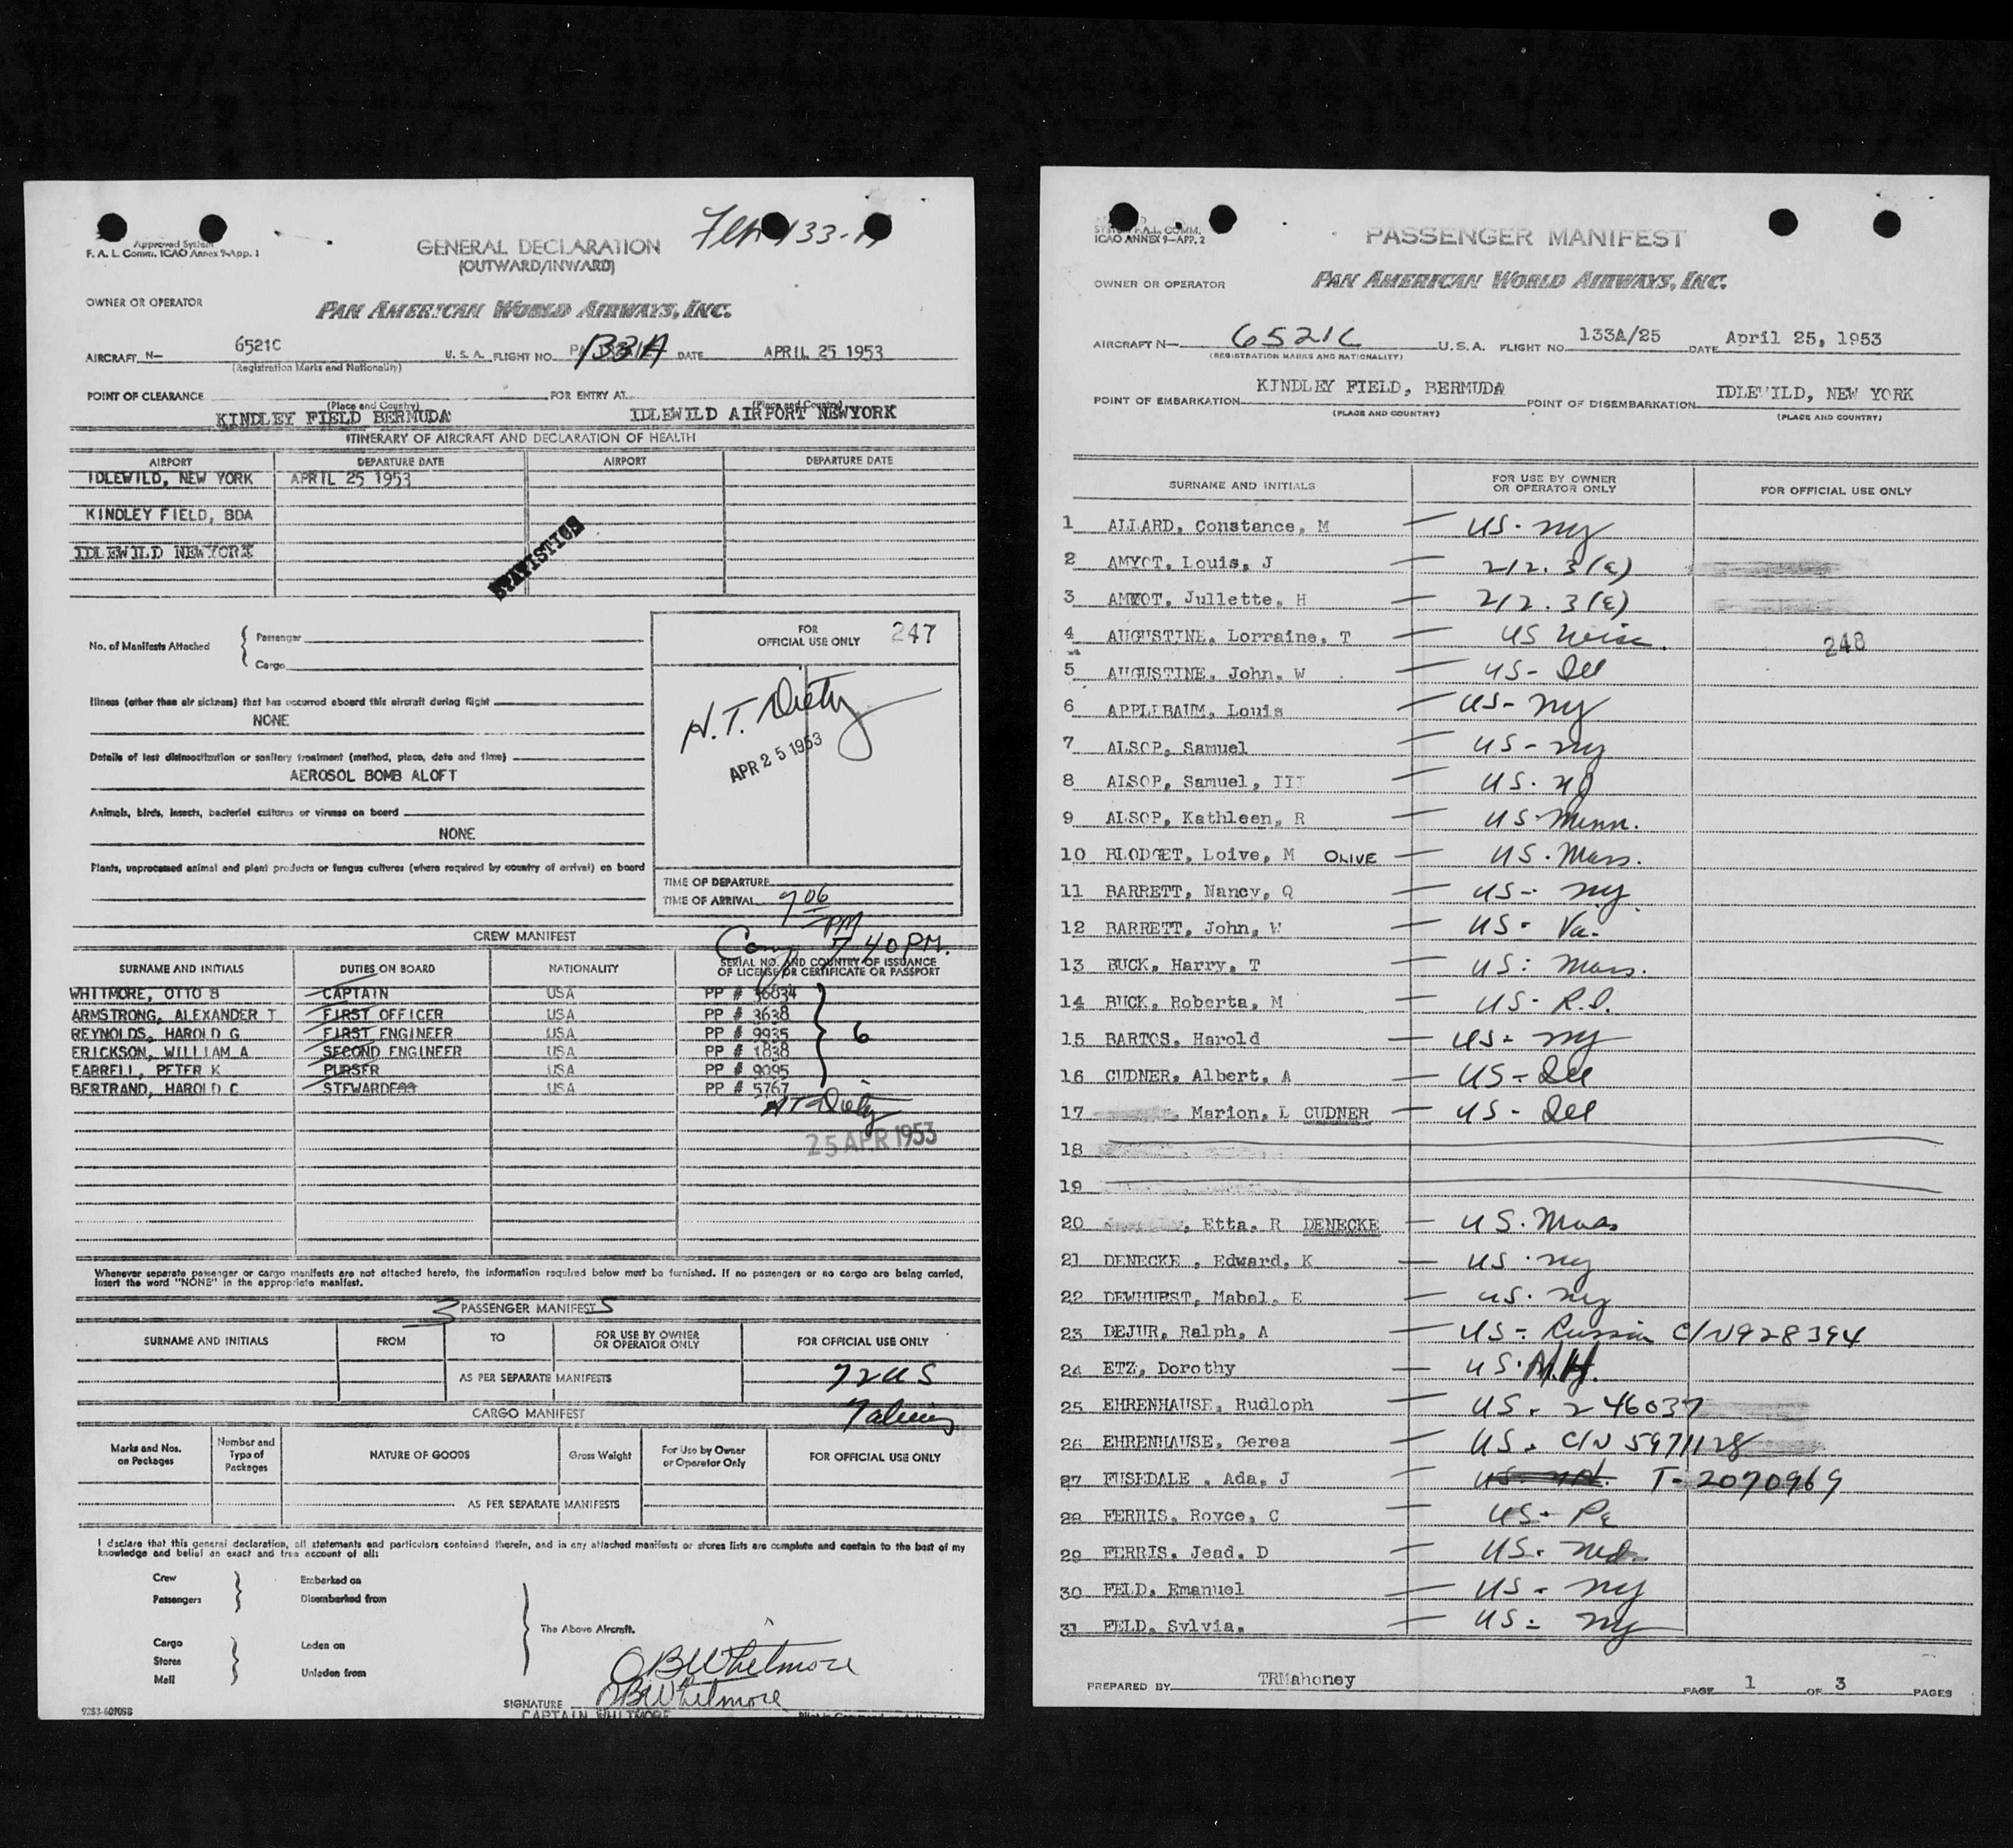 Approved System
F. A. L. Comm. ICAO Annex 9-App. 1
GENERAL DECLARATION
(OUTWARD/INWARD)
OWNER OR OPERATOR
PAN AMERICAN WORLD AIRWAYS, INC.
AIRCRAFT N— 6521C U. S. A. FLIGHT NO. 133A DATE APRIL 25 1953
(Registration Marks and Nationality)
POINT OF CLEARANCE FOR ENTRY AT
(Place and Country) (Place and Country)
KINDLEY FIELD BERMUDA IDLEWILD AIRPORT NEWYORK
ITINERARY OF AIRCRAFT AND DECLARATION OF HEALTH
AIRPORT DEPARTURE DATE AIRPORT DEPARTURE DATE
IDLEWILD, NEW YORK APRIL 25 1953
KINDLEY FIELD, BDA
IDLEWILD NEWYORK
STATISTICS
No. of Manifests Attached
Passenger
Cargo
FOR
OFFICIAL USE ONLY 247
Illness (other than air sickness) that has occurred aboard this aircraft during flight
NONE
H.T. Diety
APR 25 1953
Details of last disinsectization or sanitary treatment (method, place, date and time)
AEROSOL BOMB ALOFT
Animals, birds, insects, bacterial cultures or viruses on board
NONE
Plants, unprocessed animal and plant products or fungus cultures (where required by country of arrival) on board
TIME OF DEPARTURE
TIME OF ARRIVAL 7 06
PM
7 40 PM.
CREW MANIFEST
SURNAME AND INITIALS DUTIES ON BOARD NATIONALITY SERIAL NO. AND COUNTRY OF ISSUANCE
OF LICENSE OR CERTIFICATE OR PASSPORT
WHITMORE, OTTO B CAPTAIN USA PP # 36834
ARMSTRONG, ALEXANDER T FIRST OFFICER USA PP # 3638
REYNOLDS, HAROLD G FIRST ENGINEER USA PP # 9935
ERICKSON, WILLIAM A SECOND ENGINEER USA PP # 1838
FARRELL, PETER K PURSER USA PP # 9095
BERTRAND, HAROLD C STEWARDESS USA PP # 5767
6
HT Diety
25 APR 1953
Whenever separate passenger or cargo manifests are not attached hereto, the information required below must be furnished. If no passengers or no cargo are being carried,
insert the word "NONE" in the appropriate manifest.
3 PASSENGER MANIFESTS
SURNAME AND INITIALS FROM TO FOR USE BY OWNER
OR OPERATOR ONLY FOR OFFICIAL USE ONLY
72 US
AS PER SEPARATE MANIFESTS
7 aliens
CARGO MANIFEST
Marks and Nos.
on Packages Number and
Type of
Packages NATURE OF GOODS Gross Weight For Use by Owner
or Operator Only FOR OFFICIAL USE ONLY
AS PER SEPARATE MANIFESTS
I declare that this general declaration, all statements and particulars contained therein, and in any attached manifests or stores lists are complete and contain to the best of my
knowledge and belief an exact and true account of all:
Crew Embarked on
Passengers Disembarked from
The Above Aircraft.
Cargo Laden on
Stores
Mail Unladen from
OBWhitmore
SIGNATURE OBWhitmore
CAPTAIN WHITMORE
SYSTEM F.A.L. COMM.
ICAO ANNEX 9—APP. 2
PASSENGER MANIFEST
OWNER OR OPERATOR
PAN AMERICAN WORLD AIRWAYS, INC.
AIRCRAFT N— 6521C U.S.A. FLIGHT NO. 133A/25 DATE April 25, 1953
(REGISTRATION MARKS AND NATIONALITY)
POINT OF EMBARKATION KINDLEY FIELD, BERMUDA POINT OF DISEMBARKATION IDLEWILD, NEW YORK
(PLACE AND COUNTRY) (PLACE AND COUNTRY)
SURNAME AND INITIALS FOR USE BY OWNER
OR OPERATOR ONLY FOR OFFICIAL USE ONLY
1 ALLARD, Constance, M — US - NY
2 AMYOT, Louis, J — 212.3(E)
3 AMYOT, Jullette, H — 212.3(E)
4 AUGUSTINE, Lorraine, T — US Wisc. 248
5 AUGUSTINE, John, W — US - Ill
6 APPLIBAUM, Louis — US - NY
7 ALSOP, Samuel — US - NY
8 ALSOP, Samuel, III — US - NJ
9 ALSOP, Kathleen, R — US - Minn.
10 BLODGET, Loive, M OLIVE — US - Mass.
11 BARRETT, Nancy, Q — US - NY
12 BARRETT, John, W — US - Va.
13 BUCK, Harry, T — US - Mass.
14 BUCK, Roberta, M — US - R.I.
15 BARTOS, Harold — US - NY
16 CUDNER, Albert, A — US - Ill
17 , Marion, L CUDNER — US - Ill
18
19
20 , Etta, R DENECKE — US - Mass
21 DENECKE , Edward, K — US - NY
22 DEWHURST, Mabel, E — US - NY
23 DEJUR, Ralph, A — US - Russia C/N 928394
24 ETZ, Dorothy — US - N.H.
25 EHRENHAUSE, Rudloph — US - 246037
26 EHRENHAUSE, Gerea — US - C/N 5971128
27 FUSEDALE , Ada, J — T-2070969
28 FERRIS, Royce, C — US - Pa
29 FERRIS, Jead, D — US - Md.
30 FELD, Emanuel — US - NY
31 FELD, Sylvia, — US - NY
PREPARED BY TRMahoney PAGE 1 OF 3 PAGES